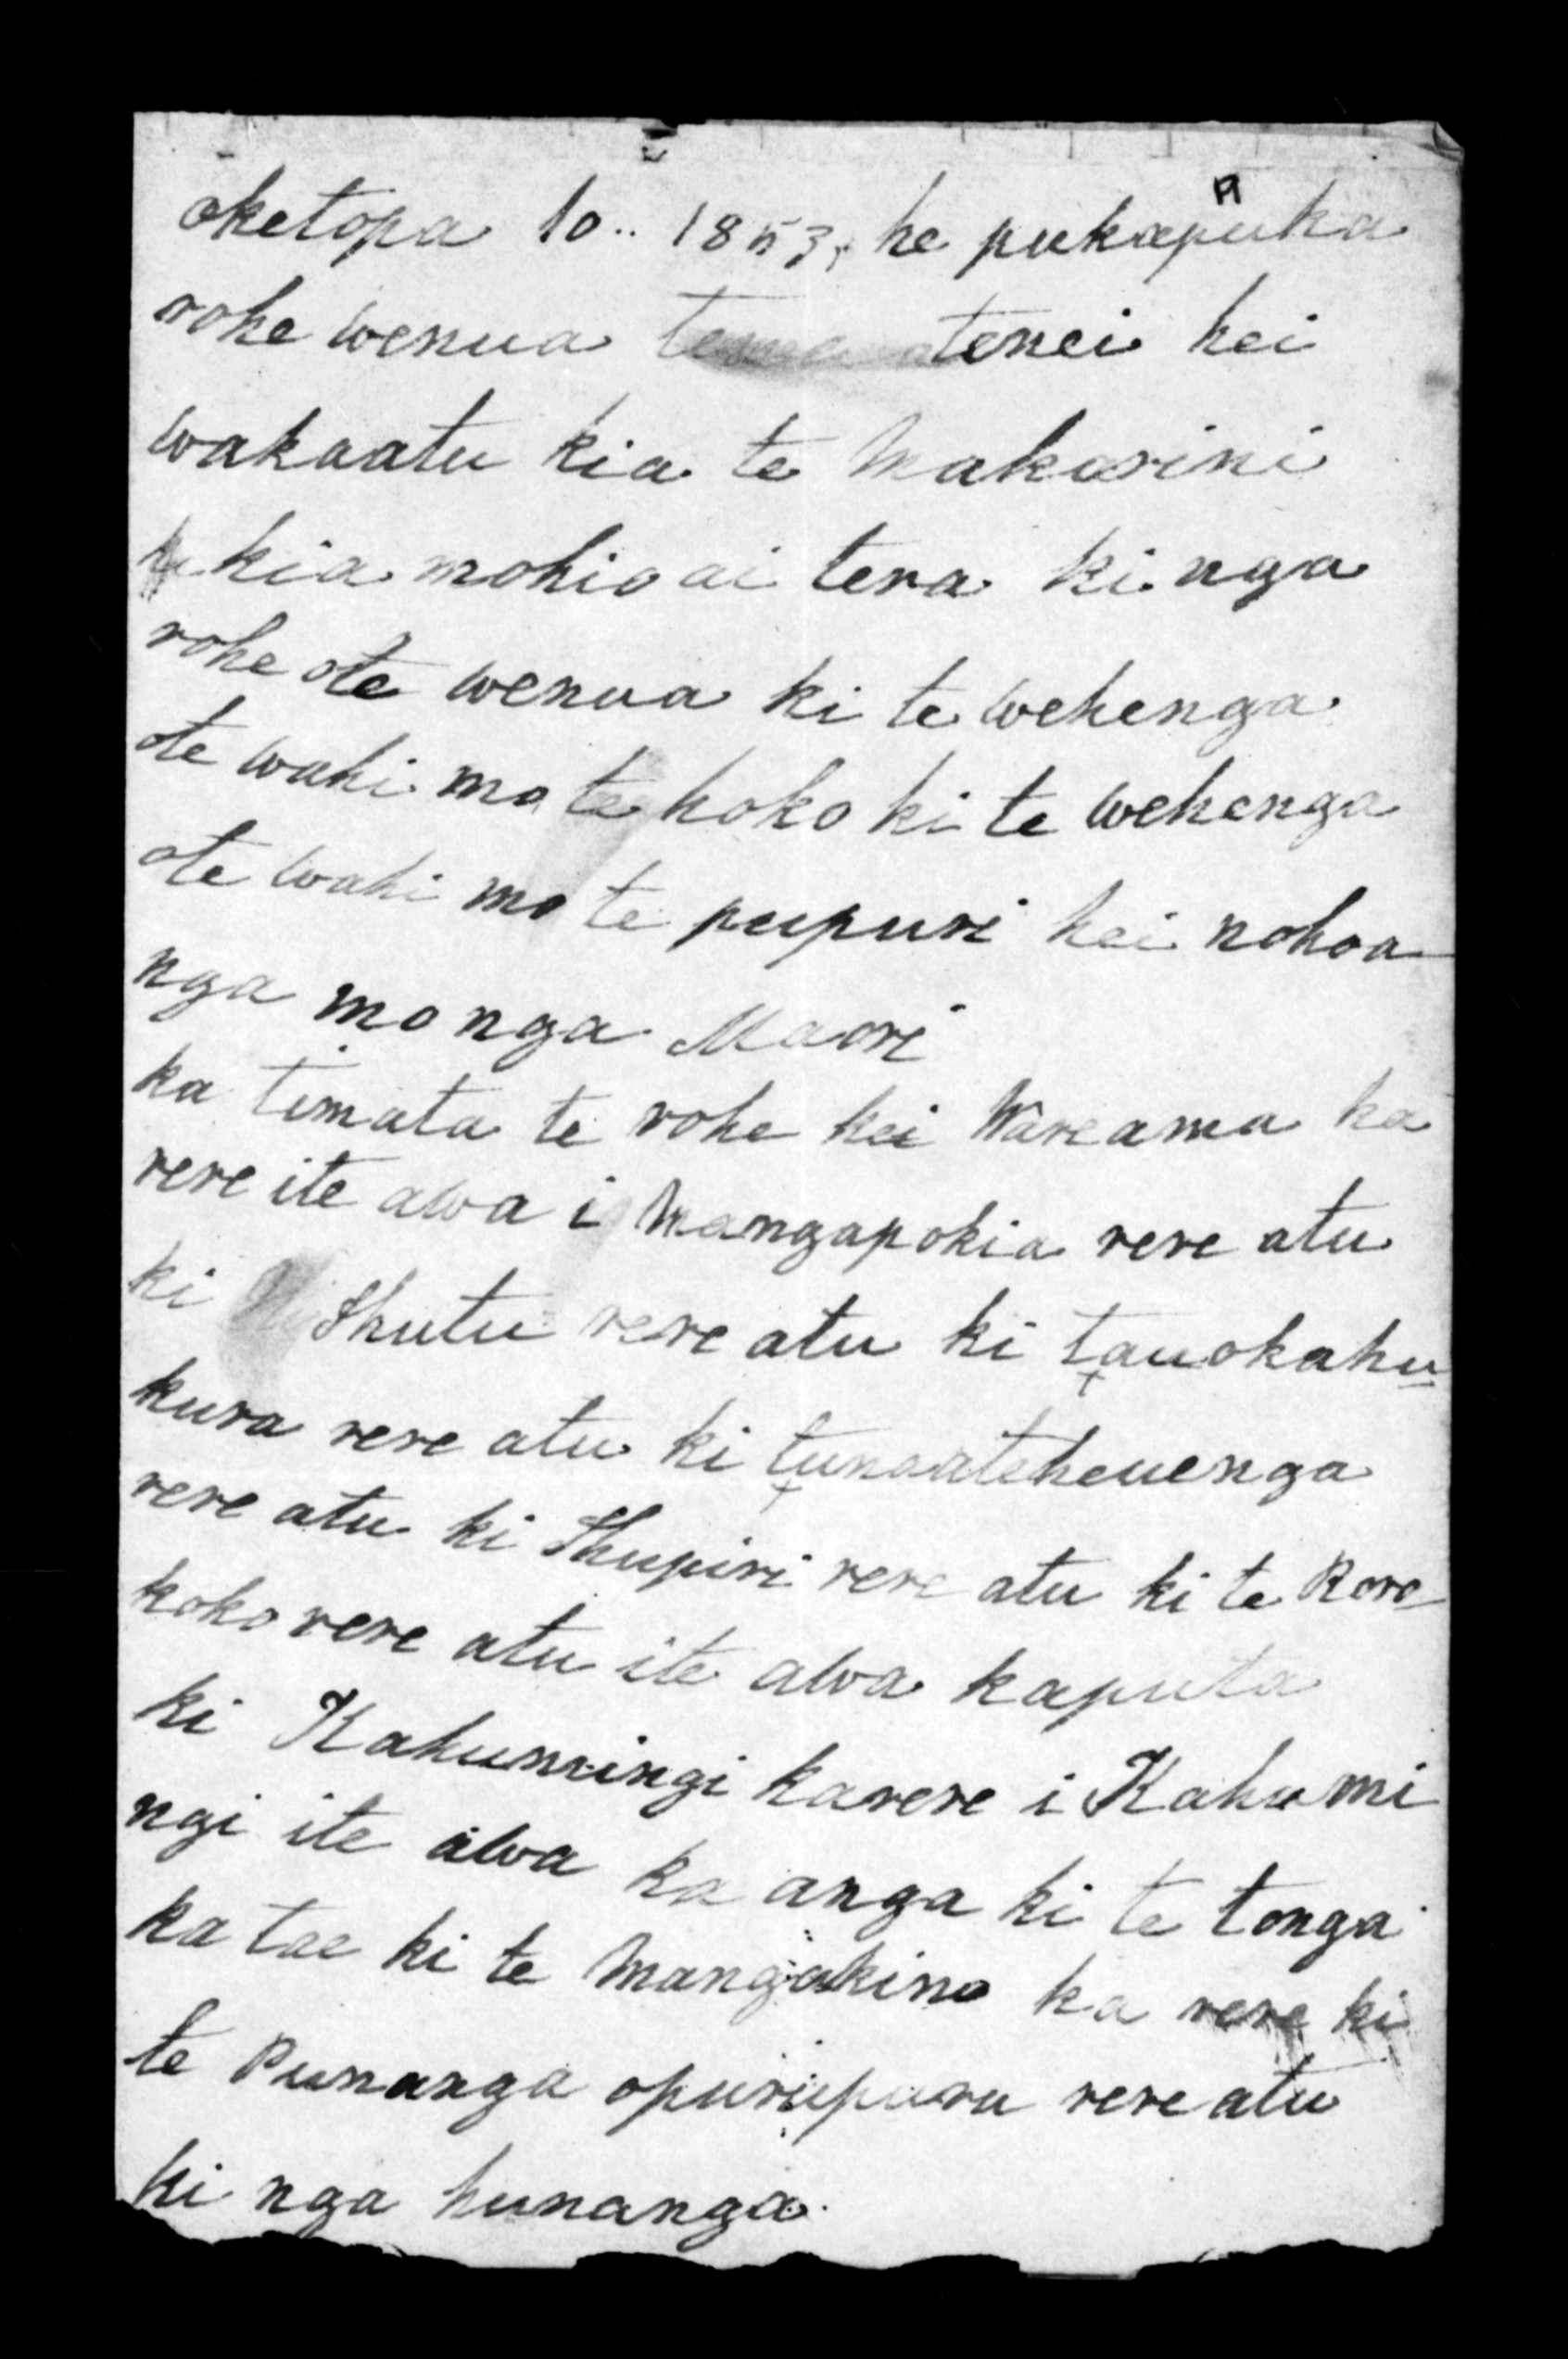 oketopa 10.. 1853, he pukapuka
rohe wenua tenei hei
wakaatu kia te Makarini
kia mohio ai tera ki nga
rohe ote wenua ki te wehenga
ote wahi mo te hoko ki te wehenga
ote wahi mo te pupuri hei nohoa
nga mo nga Maori
ka timata te rohe kei Wareama ka
rere ite awa i Mangapokia rere atu
ki Ihutu rere atu ki tauokahu
kura rere atu ki tunaateheuenga
rere atu ki Ihupiri rere atu ki te Roro
koko rere atu ite awa kaputa
ki Kahumingi karere i Kahumi
ngi ite awa ka anga ki te tonga
ka tae ki te Mangakino ka rere ki
te Punanga opuriparu rere atu
ki nga hunanga